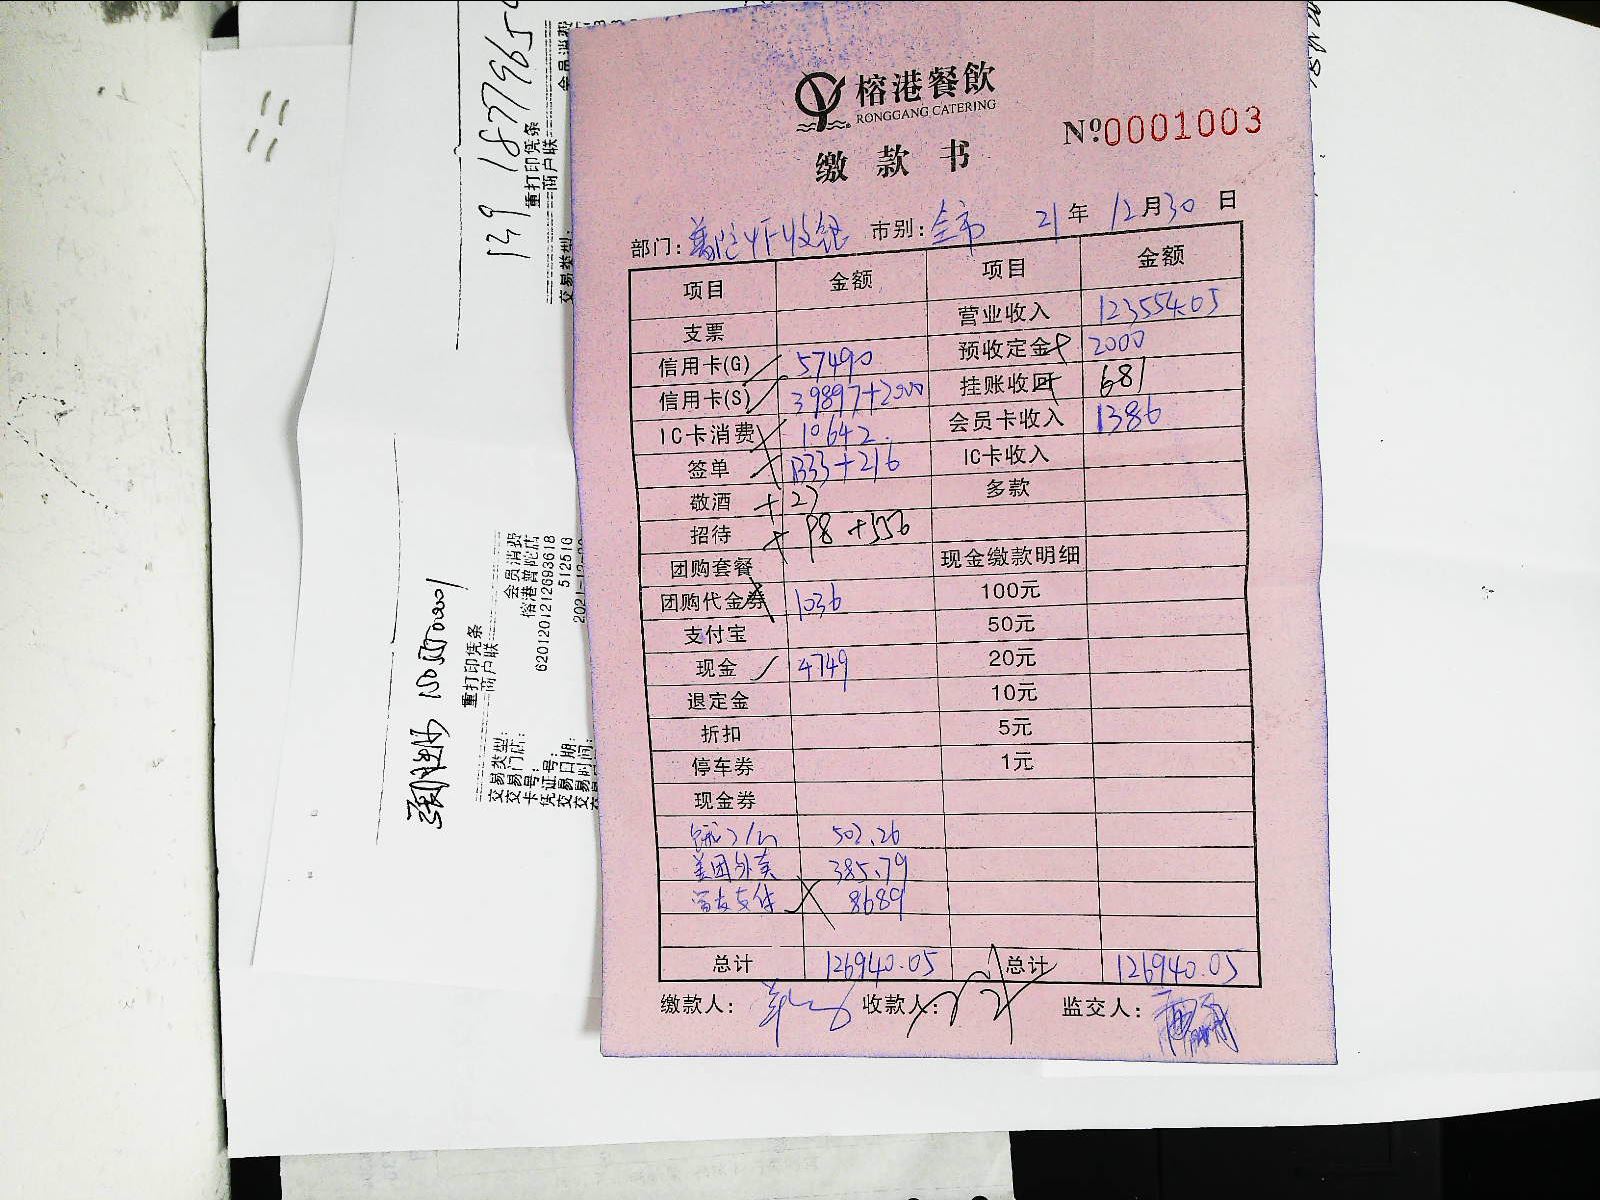 榕港餐飲
RONGGANG CATERING
缴款书
Nº:0001003
部门: 市别:全市 21年 12月30日
项目 金额 项目 金额
支票 营业收入 123554.05
信用卡(G) 57490 预收定金 2000
信用卡(S) 39897+2000 挂账收回 681
IC卡消费 10642 会员卡收入 1386
签单 +216 IC卡收入
敬酒 多款
招待 98
团购套餐 现金缴款明细
团购代金券 1036 100元
支付宝 50元
现金 4749 20元
退定金 10元
折扣 5元
停车券 1元
现金券
502.26
美团外卖 385.79
8689
总计 126940.05 总计 126940.05
缴款人: 收款人: 监交人:
139 1837965
重打印凭条
商户联
交易类型:
会员消费
重打印凭条
商户联
交易类型: 会员消费
交易门店: 榕港普陀店
卡号: 6201201212693618
凭证号: 512516
交易日期:
交易时间: